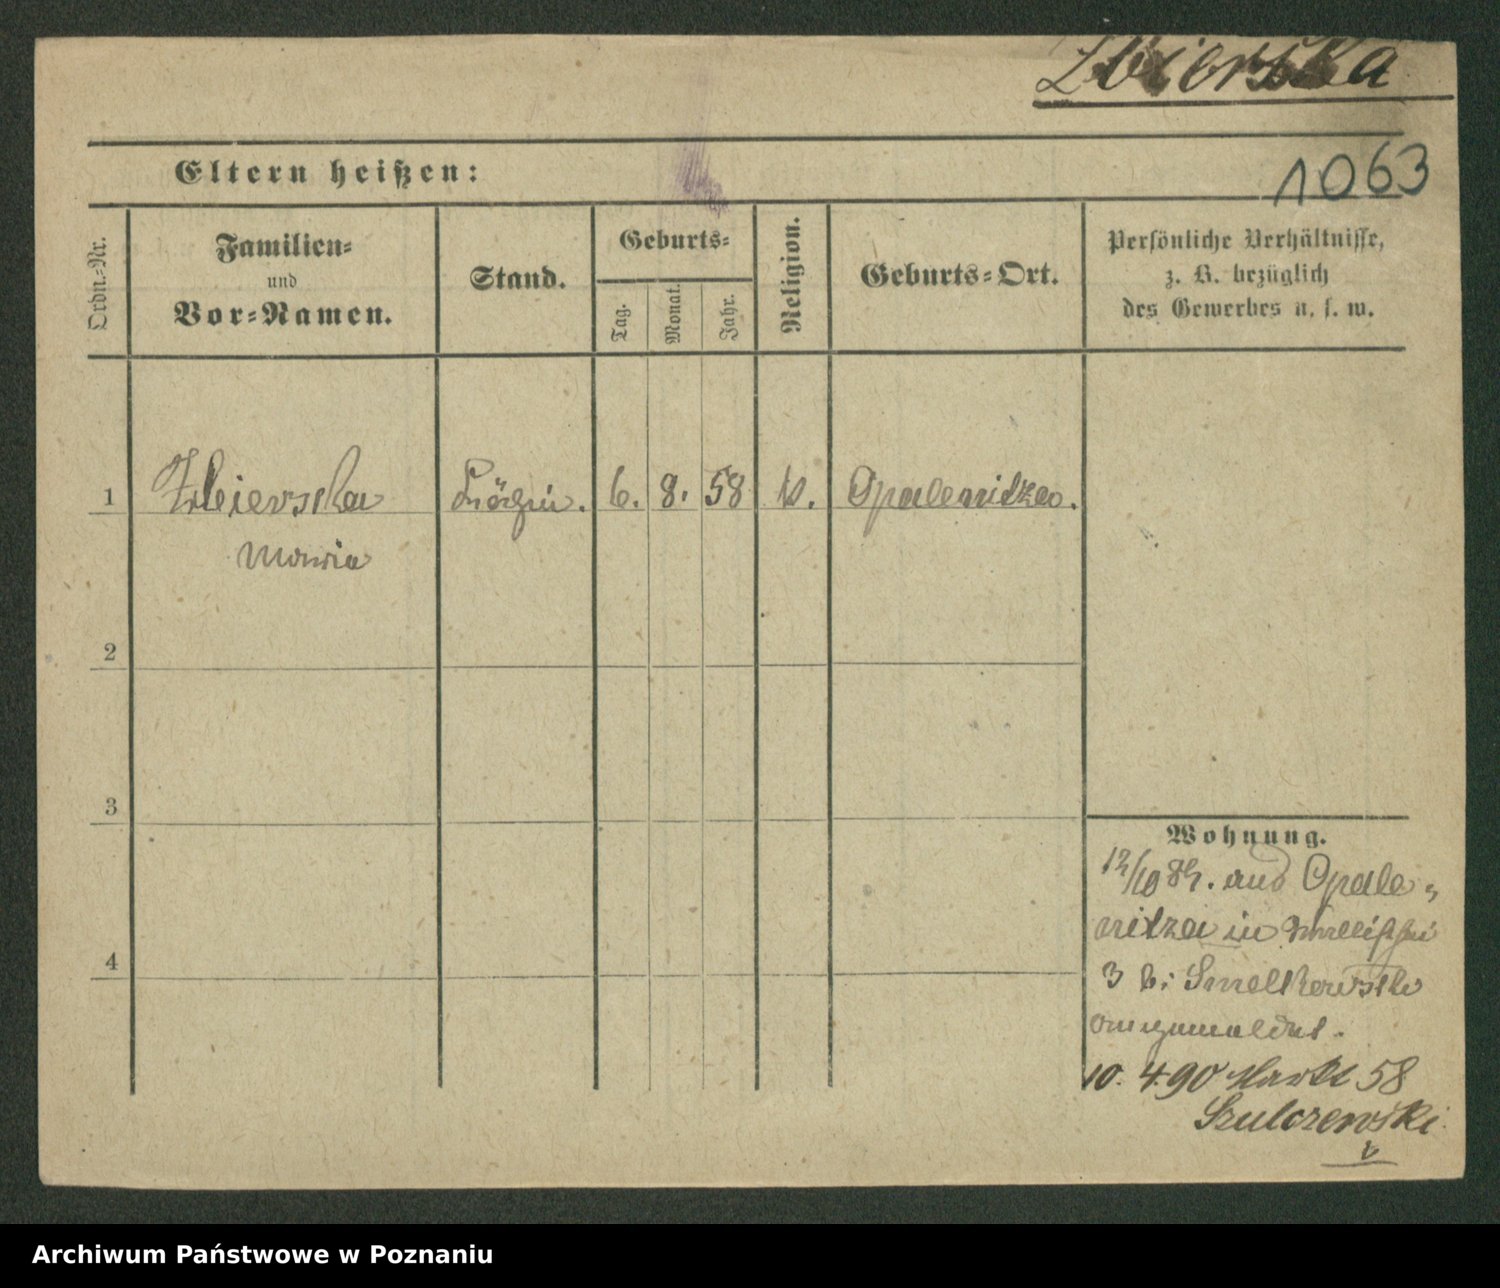 Zbierska
1063
Eltern heißen:
Ordn.-Nr.
Familien-
und
Vor-Namen.
Stand.
Geburts-
Tag.
Monat.
Jahr.
Religion.
Geburts-Ort.
Persönliche Verhältnisse,
z. B. bezüglich
des Gewerbes u. s. w.
1 Zbierska Köchin. 6. 8. 58 k. Opalenitza.
Maria
2
3
4
Wohnung.
12/10 aus Opale-
nitza in
3 b:
angemeldet.
10. 4. 90 Markt 58
Szulczewski
Archiwum Państwowe w Poznaniu